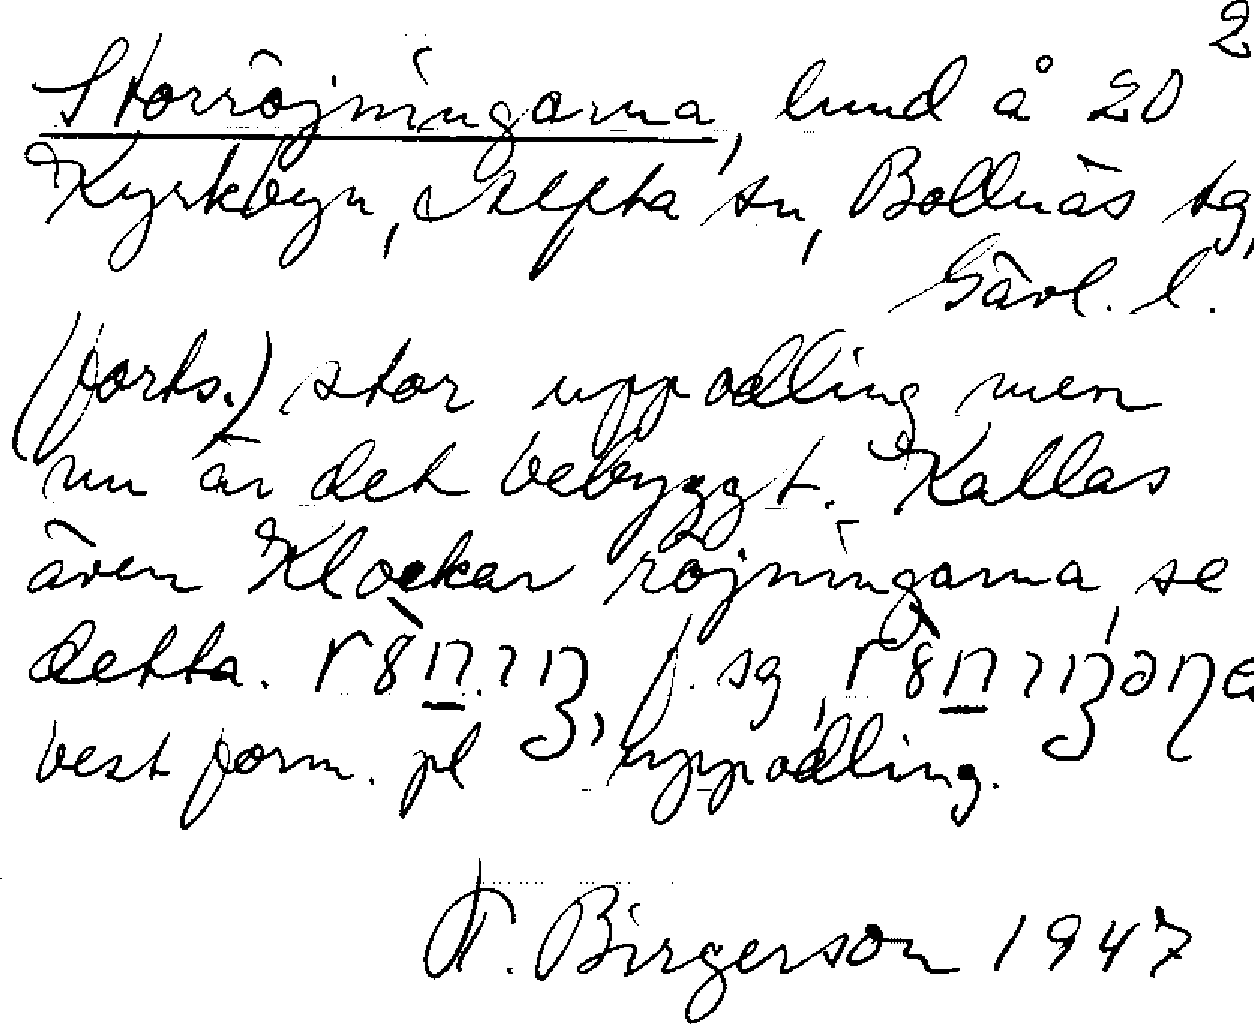 2
Storröjningarna, lund å 20
Kyrkbyn, Alfta sn, Bollnäs tg,
Gävl. l.
(forts.) stor uppodling men
nu är det bebyggt. Kallas
även Klockar röjningarna, se
detta. f. sg
best form. pl uppodling.
Birgerson 1947